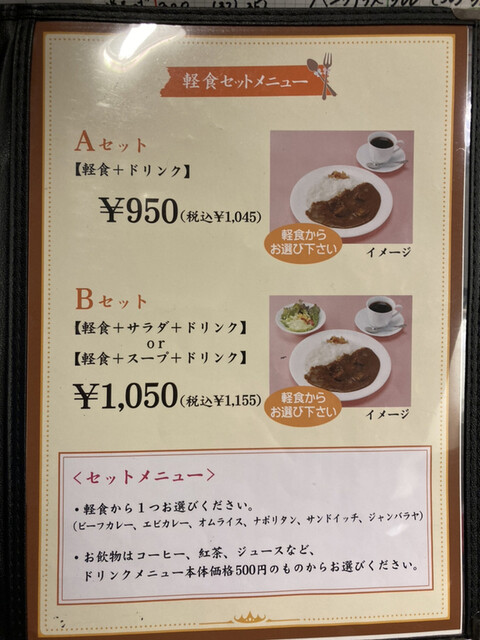 軽食セットメニュー
Aセット
【軽食＋ドリンク】
¥950(税込¥1,045)
軽食から
お選び下さい
イメージ
Bセット
【軽食＋サラダ＋ドリンク】
or
【軽食＋スープ＋ドリンク】
¥1,050(税込¥1,155)
軽食から
お選び下さい
イメージ
〈セットメニュー〉
・軽食から１つお選びください。
(ビーフカレー、エビカレー、オムライス、ナポリタン、サンドイッチ、ジャンバラヤ)
・お飲物はコーヒー、紅茶、ジュースなど、
ドリンクメニュー本体価格500円のものからお選びください。